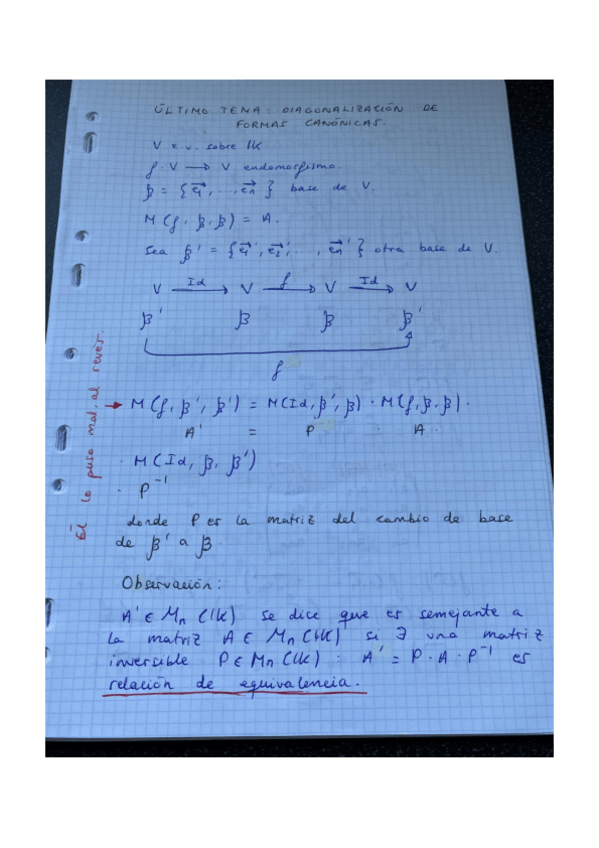 ÚLTIMO TEMA: DIAGONALIZACIÓN DE
FORMAS CANÓNICAS.
V e.v. sobre lK
f: V → V endomorfismo.
β = {e₁, ..., eₙ} base de V.
M (f, β, β) = A.
Sea β' = {e₁', e₂', ..., eₙ'} otra base de V.
V —Id→ V —f→ V —Id→ V
β' β β β'
f
Él lo puso mal, al revés.
→ M (f, β', β') = M(Id, β', β) · M(f, β, β) ·
A' = P · A ·
· M (Id, β, β')
· P⁻¹
donde P es la matriz del cambio de base
de β' a β
Observación:
A' ∈ Mn (lK) se dice que es semejante a
la matriz A ∈ Mn (lK) si ∃ una matriz
inversible P ∈ Mn (lK) : A' = P · A · P⁻¹ es
relación de equivalencia.